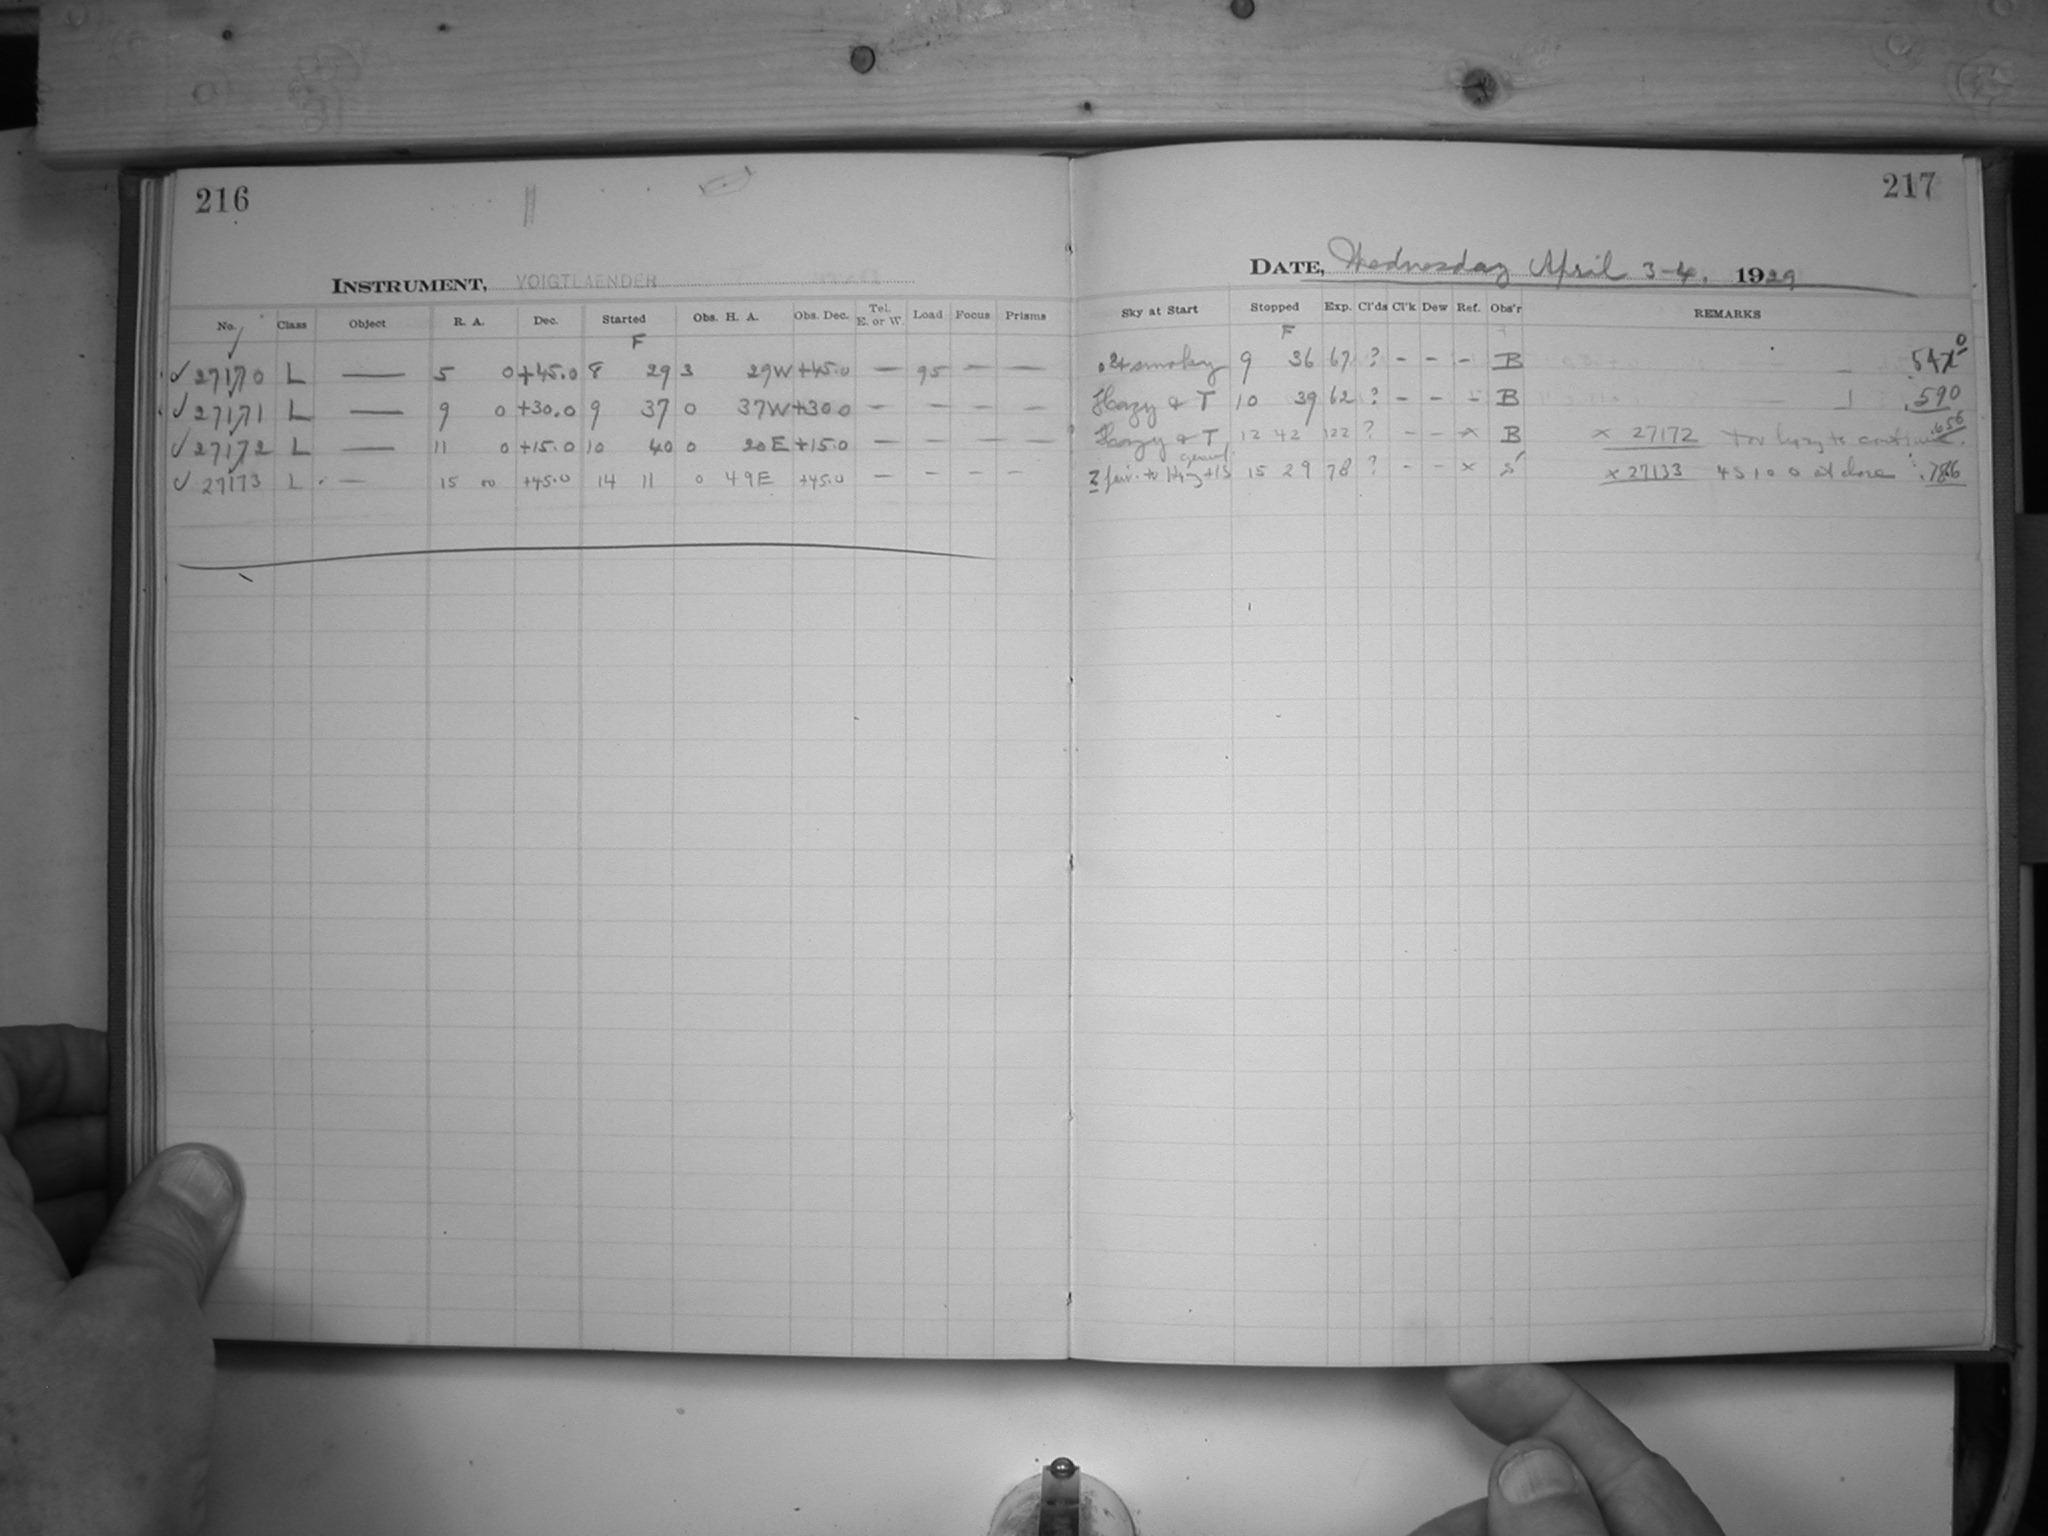 216
INSTRUMENT, VOIGTLAENDER
No. Class Object R. A. Dec. Started Obs. H. A. Obs. Dec. Tel. E. or W. Load Focus Prisms
F
✓ 27170 L — 5 0 +45.0 8 29 3 29W +45.0 — 95 — —
✓ 27171 L — 9 0 +30.0 9 37 0 37W +30.0 — — — —
✓ 27172 L — 11 0 +15.0 10 40 0 20E +15.0 — — — —
✓ 27173 L — 15 00 +45.0 14 11 0 49E +45.0 — — — —
217
DATE, Wednesday April 3-4. 1929
Sky at Start Stopped Exp. Cl'ds Cl'k Dew Ref. Obs'r REMARKS
F
smoky 9 36 67 ? - - - B
Hazy & T 10 39 62 ? - - - B .590
Hazy & T, 12 42 122 ? - - x B x 27172 Too hazy to continue. .656
15 29 78 ? - - x S x 27133 45 100 at close .786